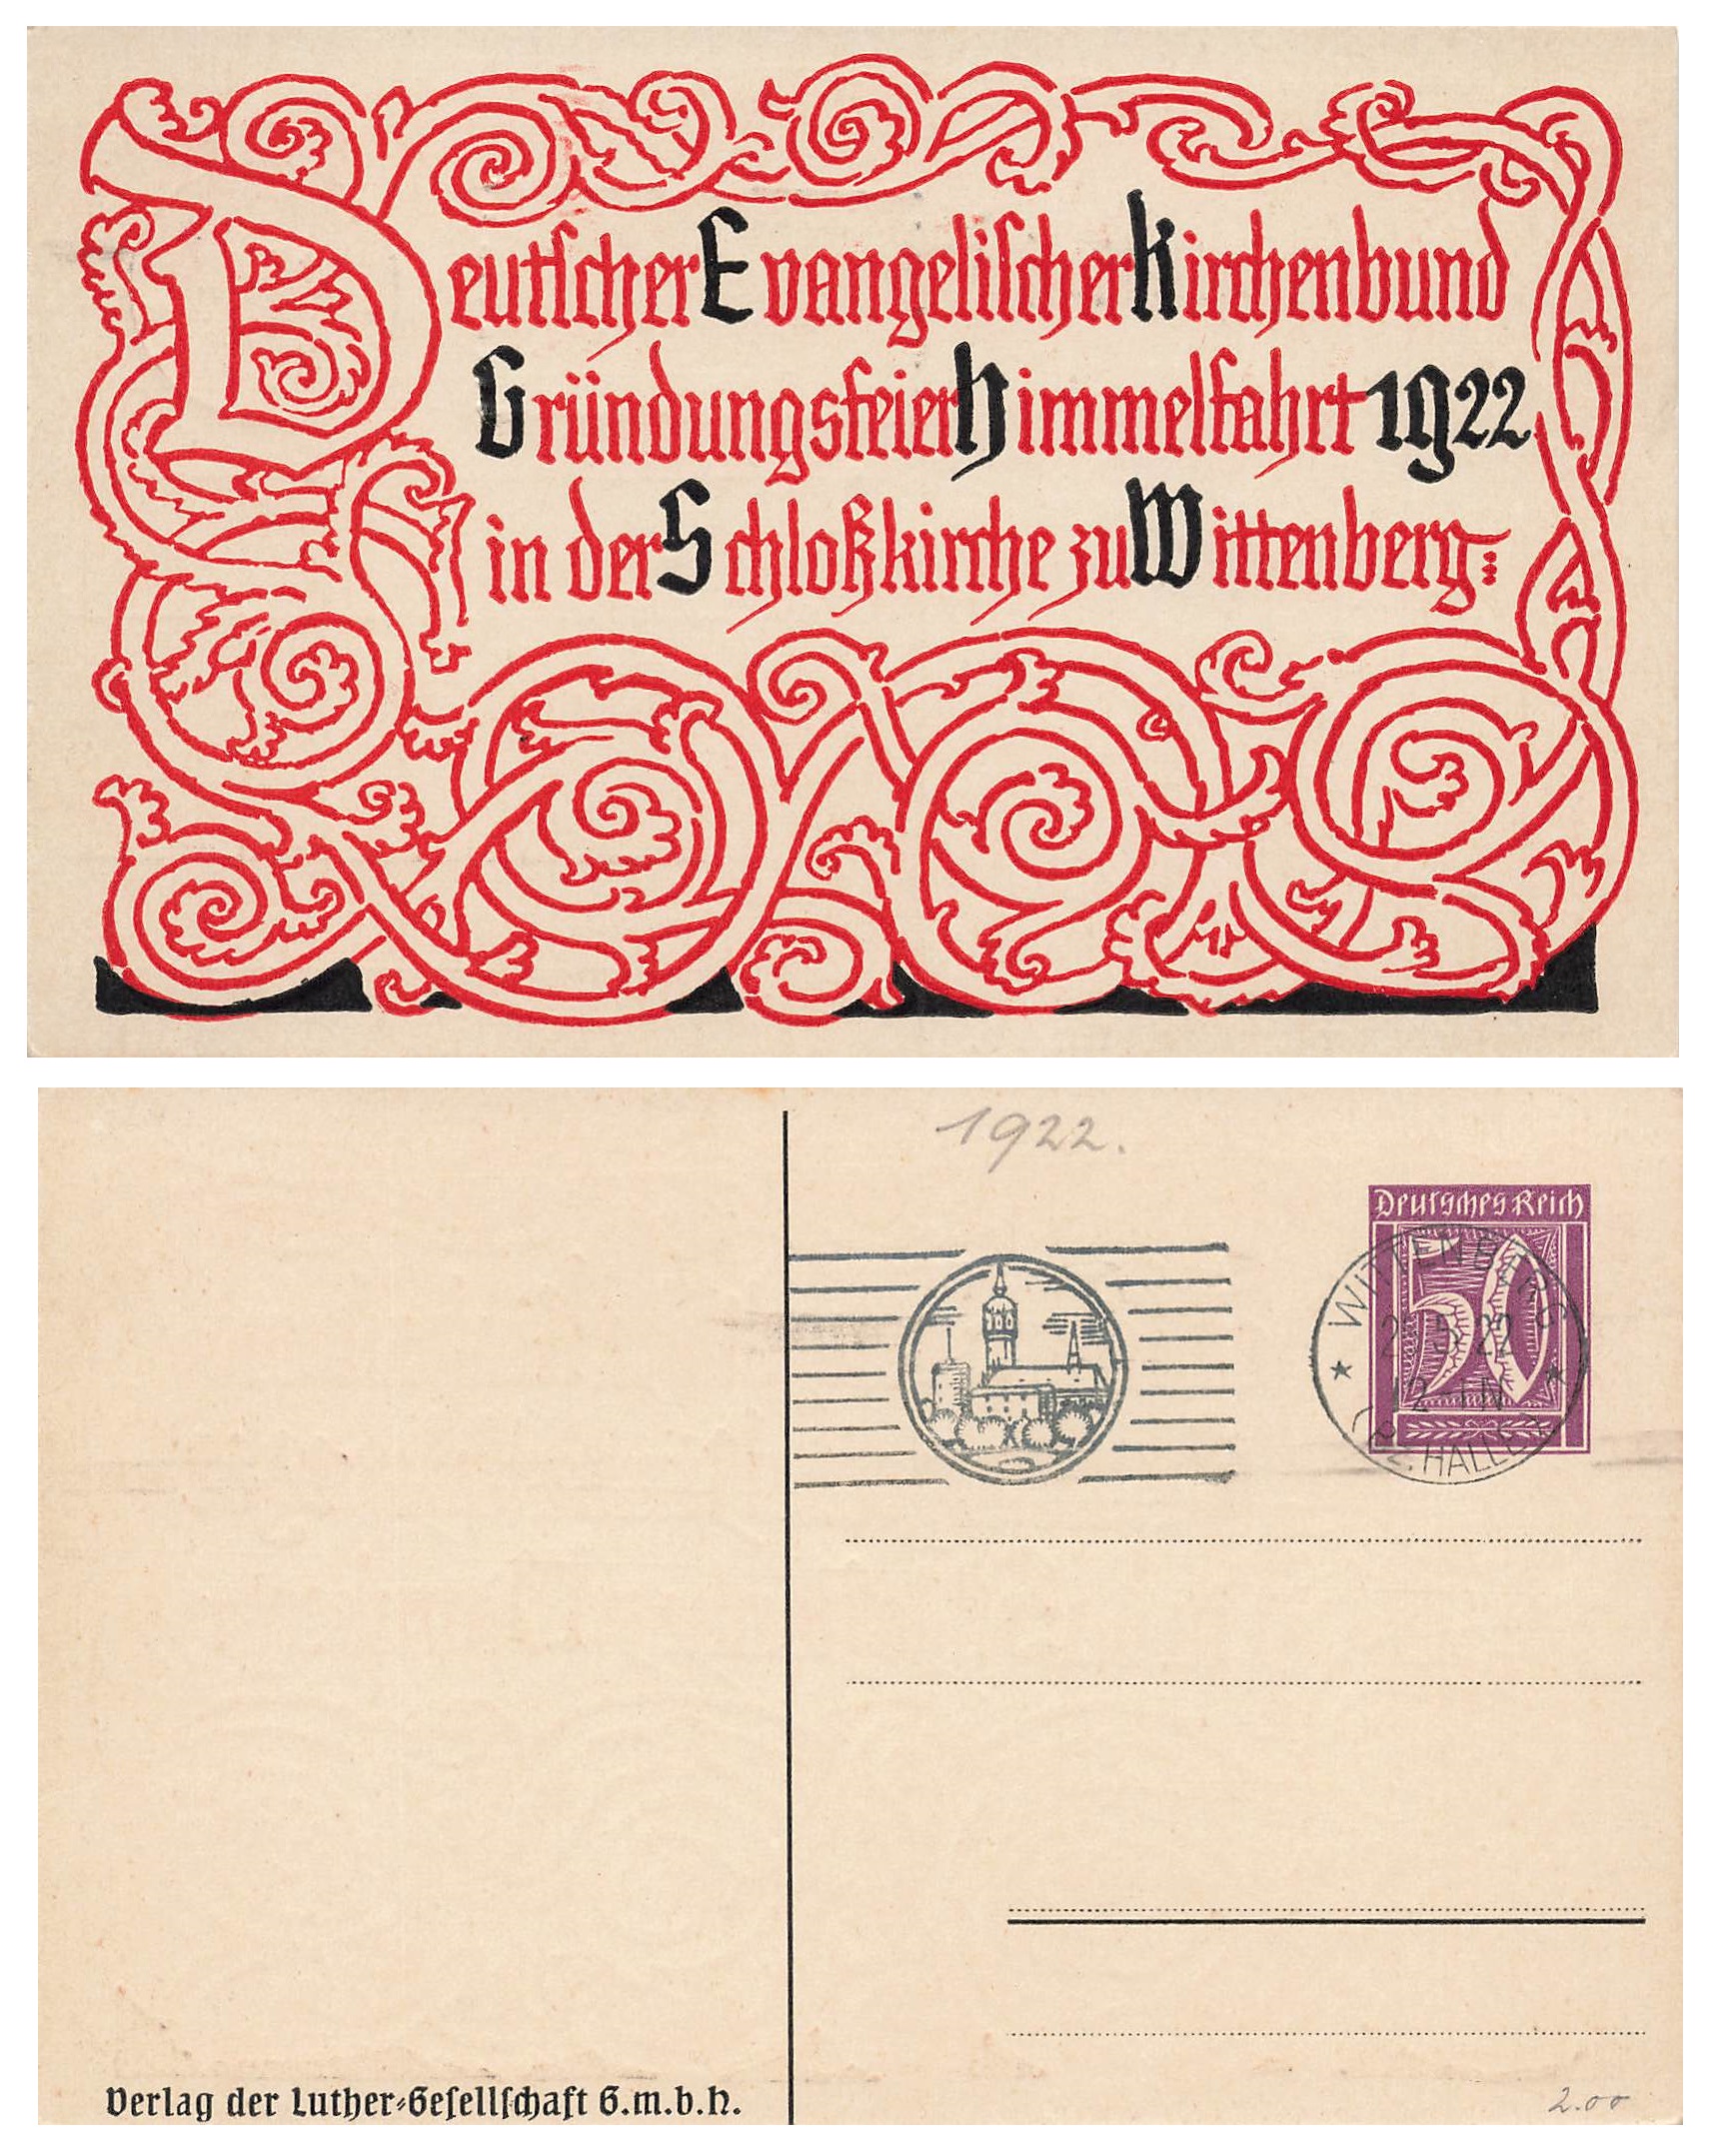 Deutscher Evangelischer Kirchenbund
Gründungsfeier Himmelfahrt 1922
in der Schloßkirche zu Wittenberg:
1922.
Deutsches Reich
50
WITTENBERG
5.22
12-1N
HALLE
Verlag der Luther-Gesellschaft G.m.b.H.
2.00